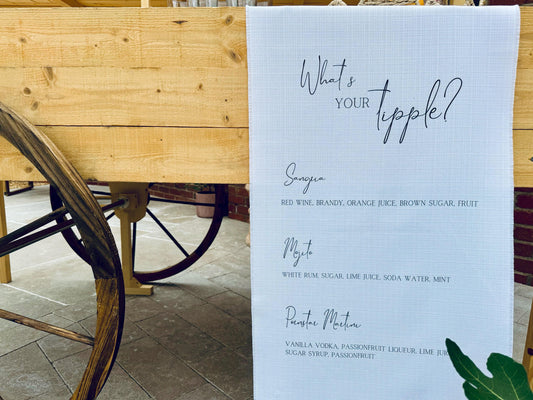 What's
YOUR tipple?
Sangria
RED WINE, BRANDY, ORANGE JUICE, BROWN SUGAR, FRUIT
Mojito
WHITE RUM, SUGAR, LIME JUICE, SODA WATER, MINT
Pornstar Martini
VANILLA VODKA, PASSIONFRUIT LIQUEUR, LIME
SUGAR SYRUP, PASSIONFRUIT